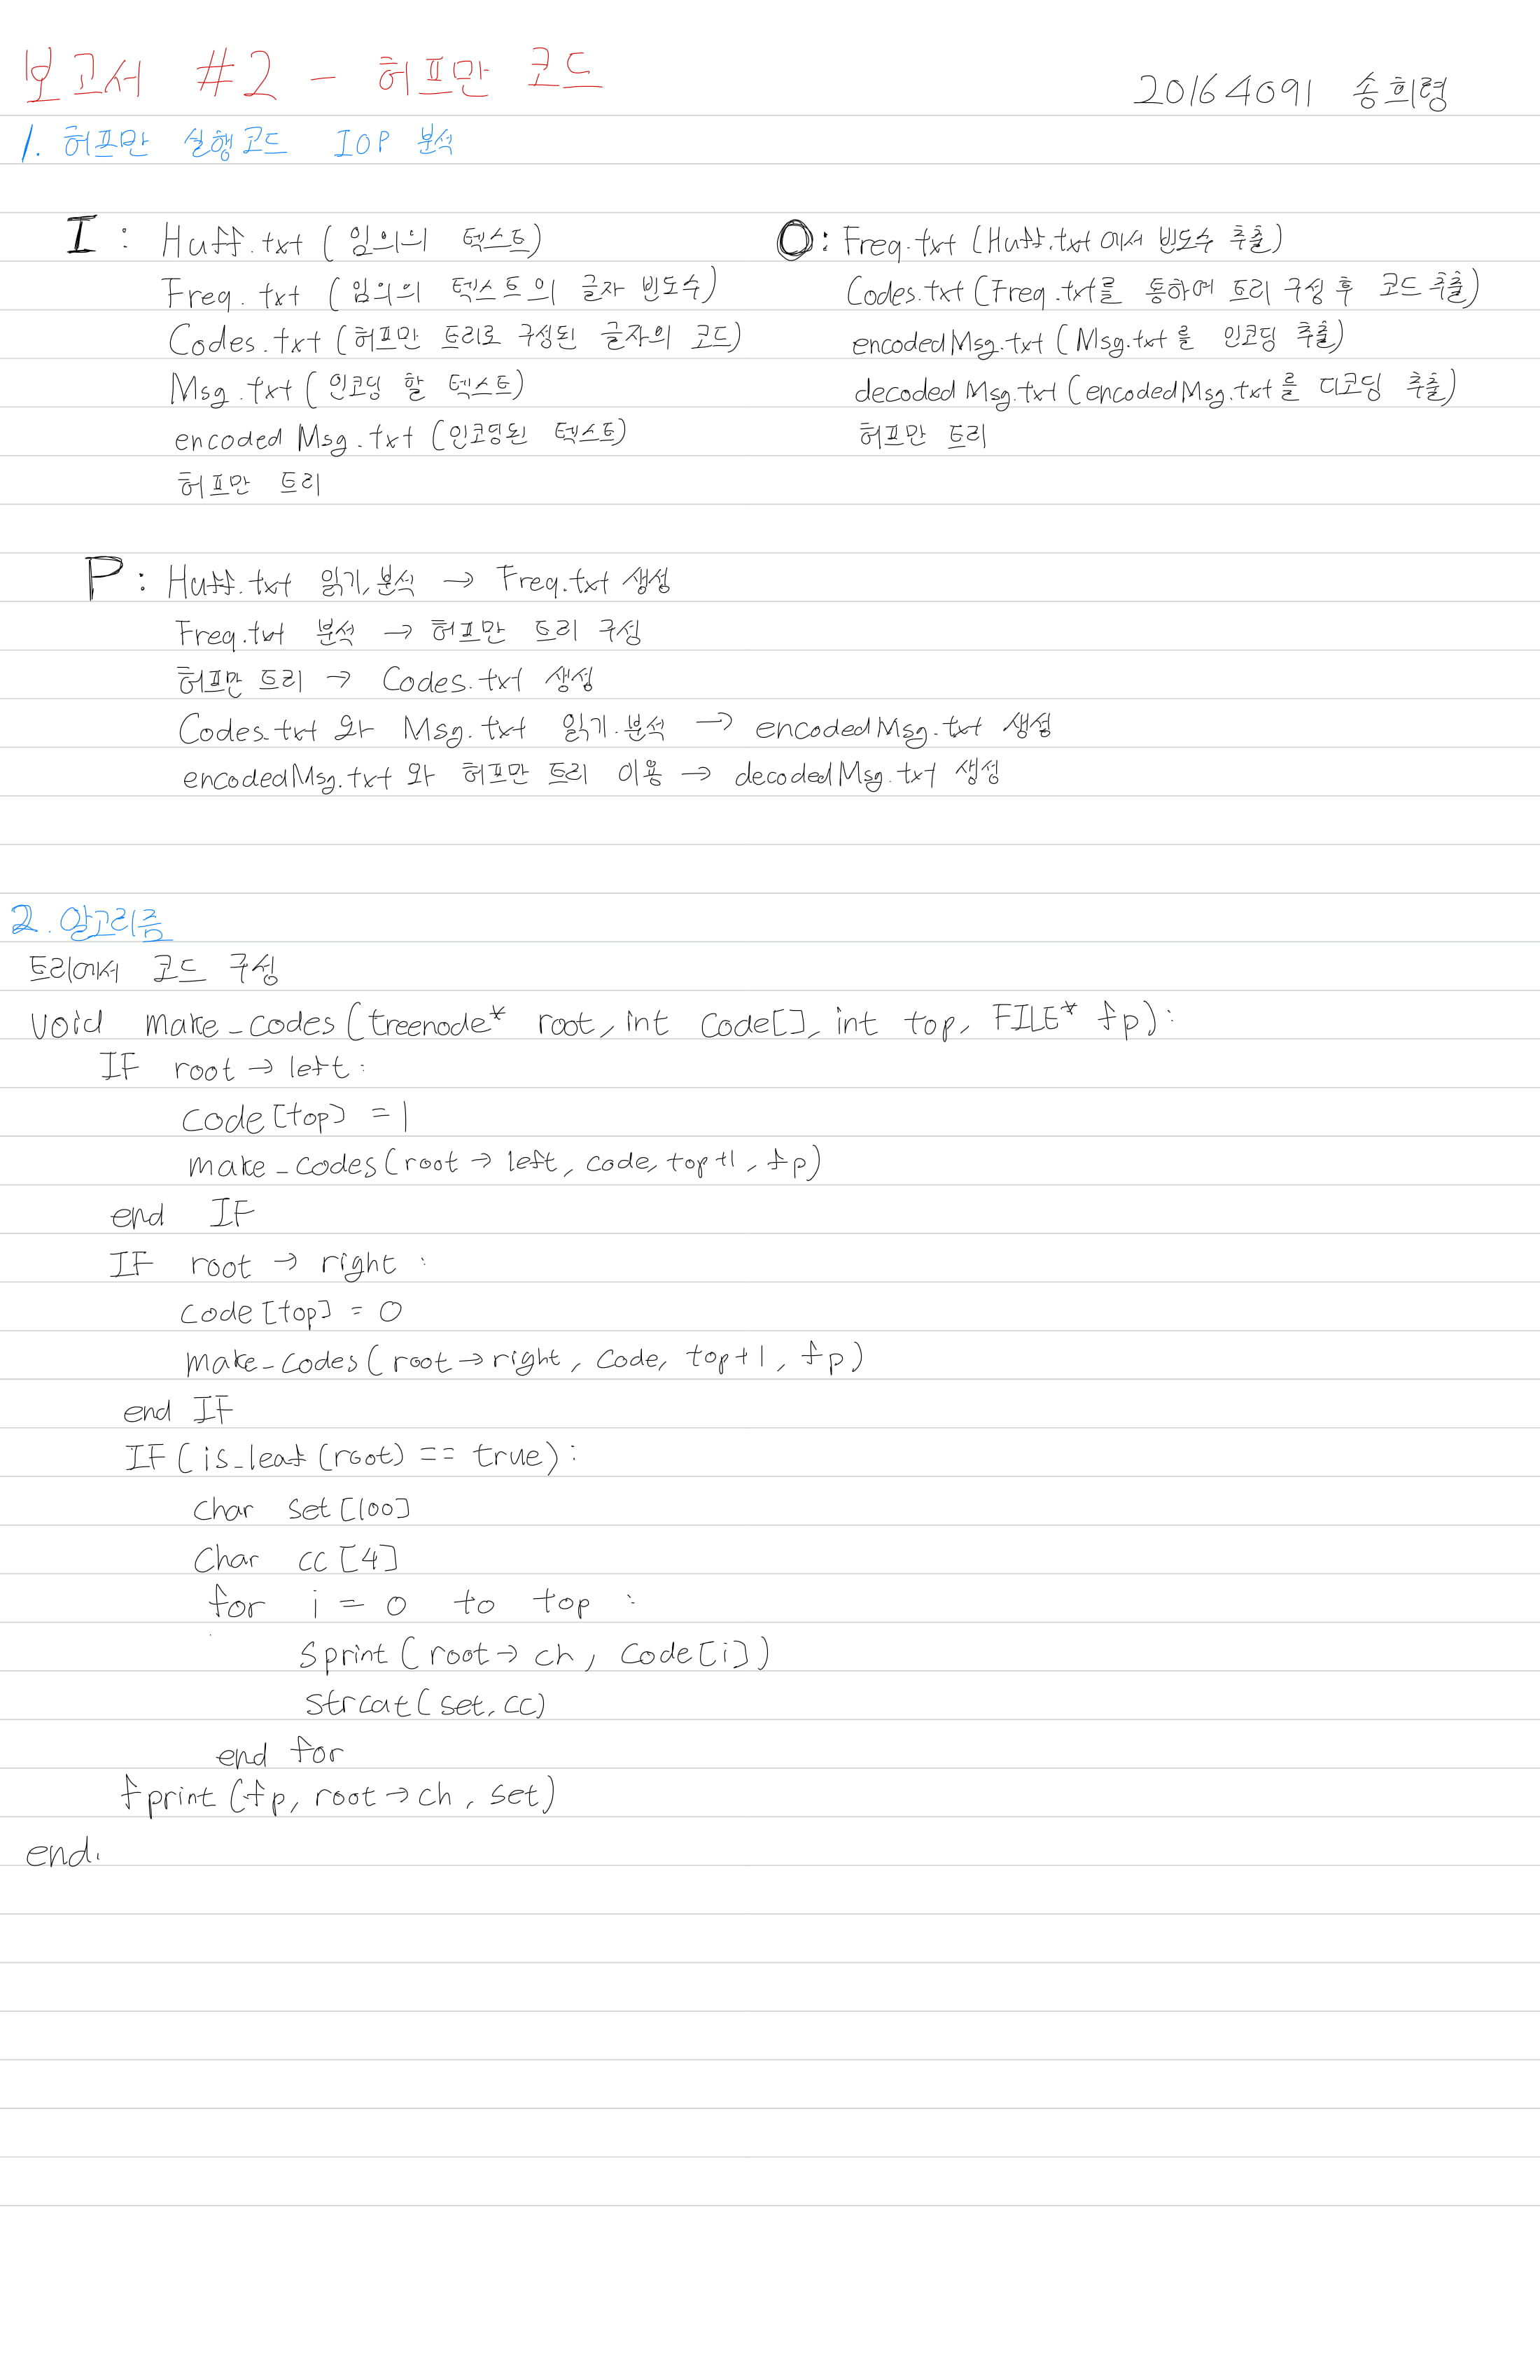 보고서 #2 - 허프만 코드
20164091 송희령
1. 허프만 실행코드 IOP 분석
I : Huff.txt ( 임의의 텍스트)
Freq. txt ( 임의의 텍스트의 글자 빈도수)
Codes.txt (허프만 트리로 구성된 글자의 코드)
Msg.txt ( 인코딩 할 텍스트)
encoded Msg.txt (인코딩된 텍스트)
허프만 트리
O : Freq.txt (Huff.txt 에서 빈도수 추출)
Codes.txt (Freq.txt를 통하여 트리 구성 후 코드 추출)
encodedMsg.txt ( Msg.txt를 인코딩 추출)
decoded Msg.txt (encodedMsg.txt를 디코딩 추출)
허프만 트리
P : Huff.txt 읽기,분석 → Freq.txt 생성
Freq.txt 분석 → 허프만 트리 구성
허프만 트리 → Codes.txt 생성
Codes.txt 와 Msg.txt 읽기.분석 → encodedMsg.txt 생성
encodedMsg.txt 와 허프만 트리 이용 → decodedMsg.txt 생성
2. 알고리즘
트리에서 코드 구성
void make_codes (treenode* root, int code[], int top, FILE* fp) :
IF root → left :
code [top] = 1
make_codes (root → left, code, top+1, fp)
end IF
IF root → right :
code [top] = 0
make_codes ( root → right, code, top+1, fp)
end IF
IF ( is_leaf (root) == true) :
char set [100]
char cc [4]
for i = 0 to top :
sprint ( root → ch, code[i])
strcat ( set, cc)
end for
fprint (fp, root → ch, set)
end.